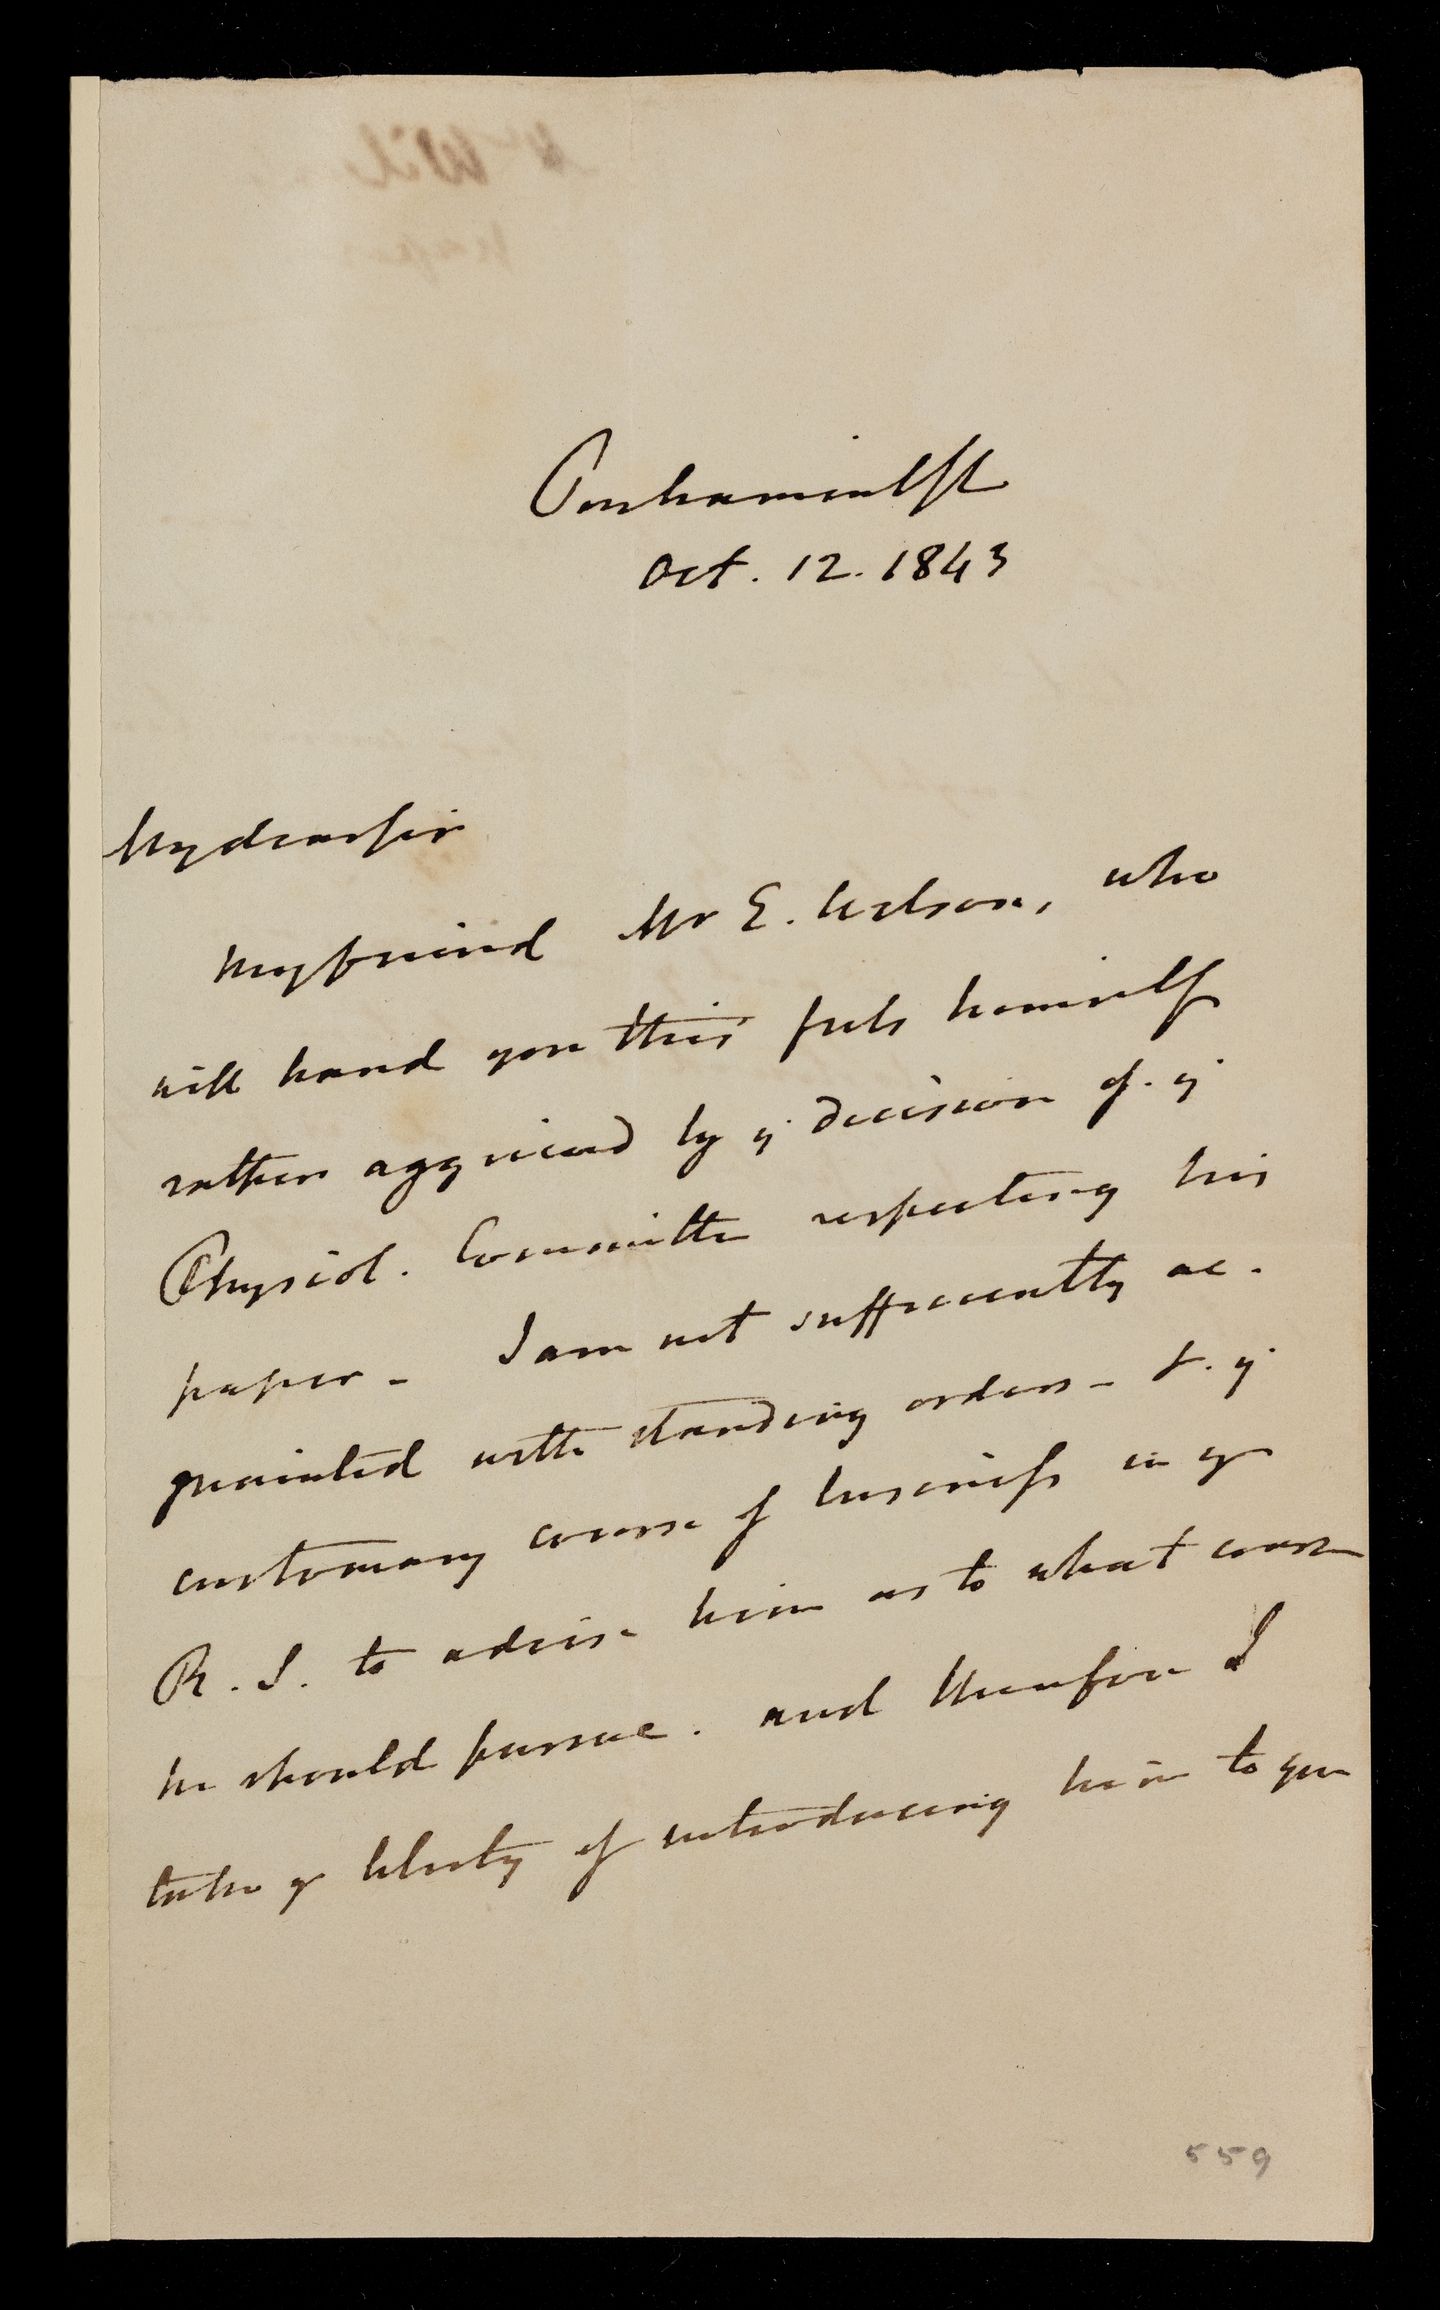 Parliament St
Oct. 12. 1843
My dear Sir
My friend Mr E. Wilson, who
will hand you this feels himself
rather aggrieved by ye decision of. ye
Physiol. Committee respecting his
paper - I am not sufficiently ac.
quainted with standing orders - & ye
customary course of business in ye
R. S. to advise him as to what course
he should pursue. and therefore I
take ye liberty of introducing him to you
559